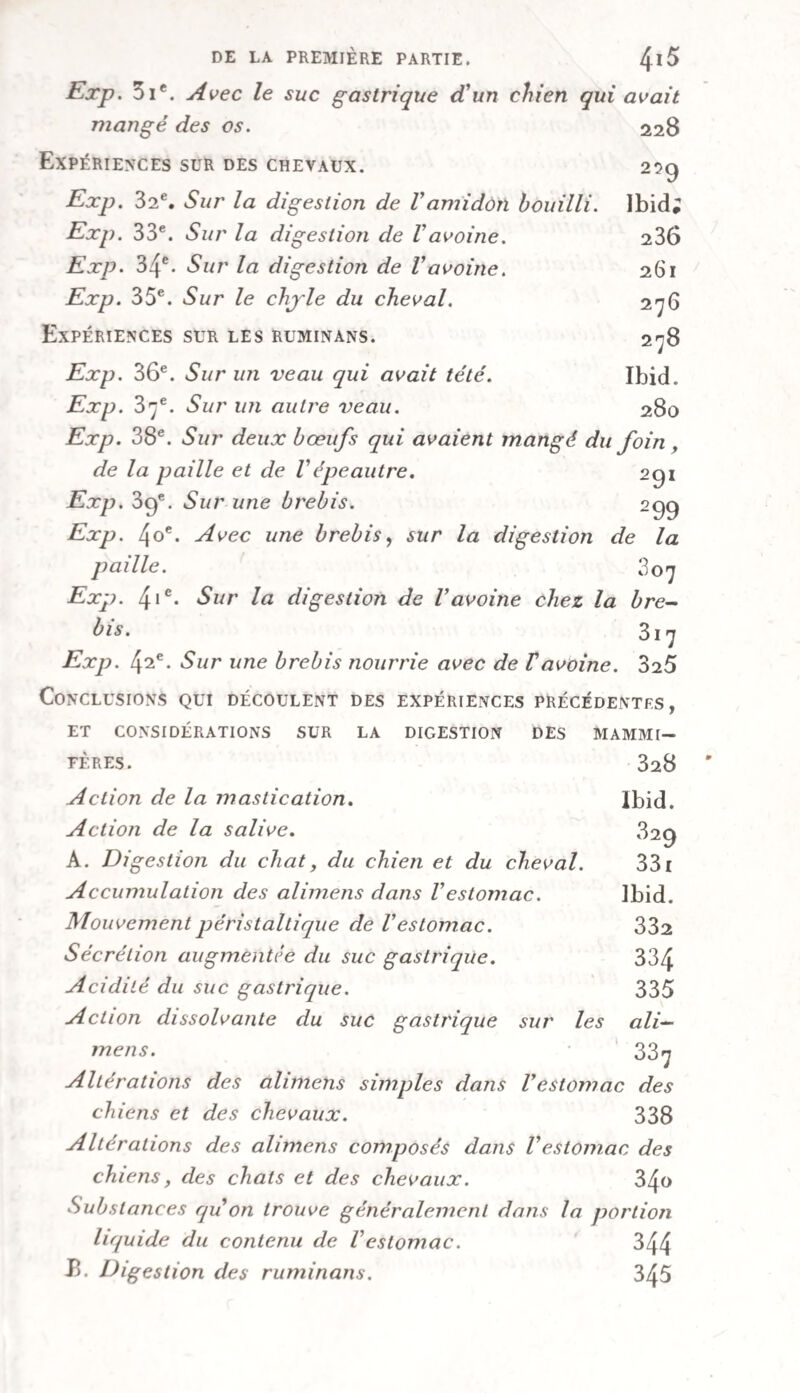 DE LA PREMIÈRE PARTIE. 415
Exp. 31e. Avec le suc gastrique d'un chien qui avait
mangé des os. 228
EXPÉRIENCES SUR DES CHEVAUX. 229
Exp. 32e. Sur la digestion de l'amidon bouilli. Ibid;
Exp. 33e. Sur la digestion de l'avoine. 236
Exp. 34e. Sur la digestion de l'avoine. 261
Exp. 35e. Sur le chyle du cheval. 276
EXPÉRIENCES SUR LES RUMINANS. 278
Exp. 36e. Sur un veau qui avait tété. Ibid.
Exp. 37e. Sur un autre veau. 280
Exp. 38e. Sur deux bœufs qui avaient mangé du foin,
de la paille et de l'épeautre. 291
Exp. 39e. Sur une brebis. 299
Exp. 40e. Avec une brebis, sur la digestion de la
paille. 307
Exp. 41e. Sur la digestion de l'avoine chez la bre-
bis. 317
Exp. 42e. Sur une brebis nourrie avec de l'avoine. 325
CONCLUSIONS QUI DÉCOULENT DES EXPÉRIENCES PRÉCÉDENTES,
ET CONSIDÉRATIONS SUR LA DIGESTION DES MAMMI-
FÈRES. 328
Action de la mastication. Ibid.
Action de la salive. 329
A. Digestion du chat, du chien et du cheval. 331
Accumulation des alimens dans l'estomac. Ibid.
Mouvement péristaltique de l'estomac. 332
Sécrétion augmentée du suc gastrique. 334
Acidité du suc gastrique. 335
Action dissolvante du suc gastrique sur les ali-
mens. 337
Altérations des alimens simples dans l'estomac des
chiens et des chevaux. 338
Altérations des alimens composés dans l'estomac des
chiens, des chats et des chevaux. 340
Substances qu'on trouve généralement dans la portion
liquide du contenu de l'estomac. 344
B. Digestion des ruminans. 345